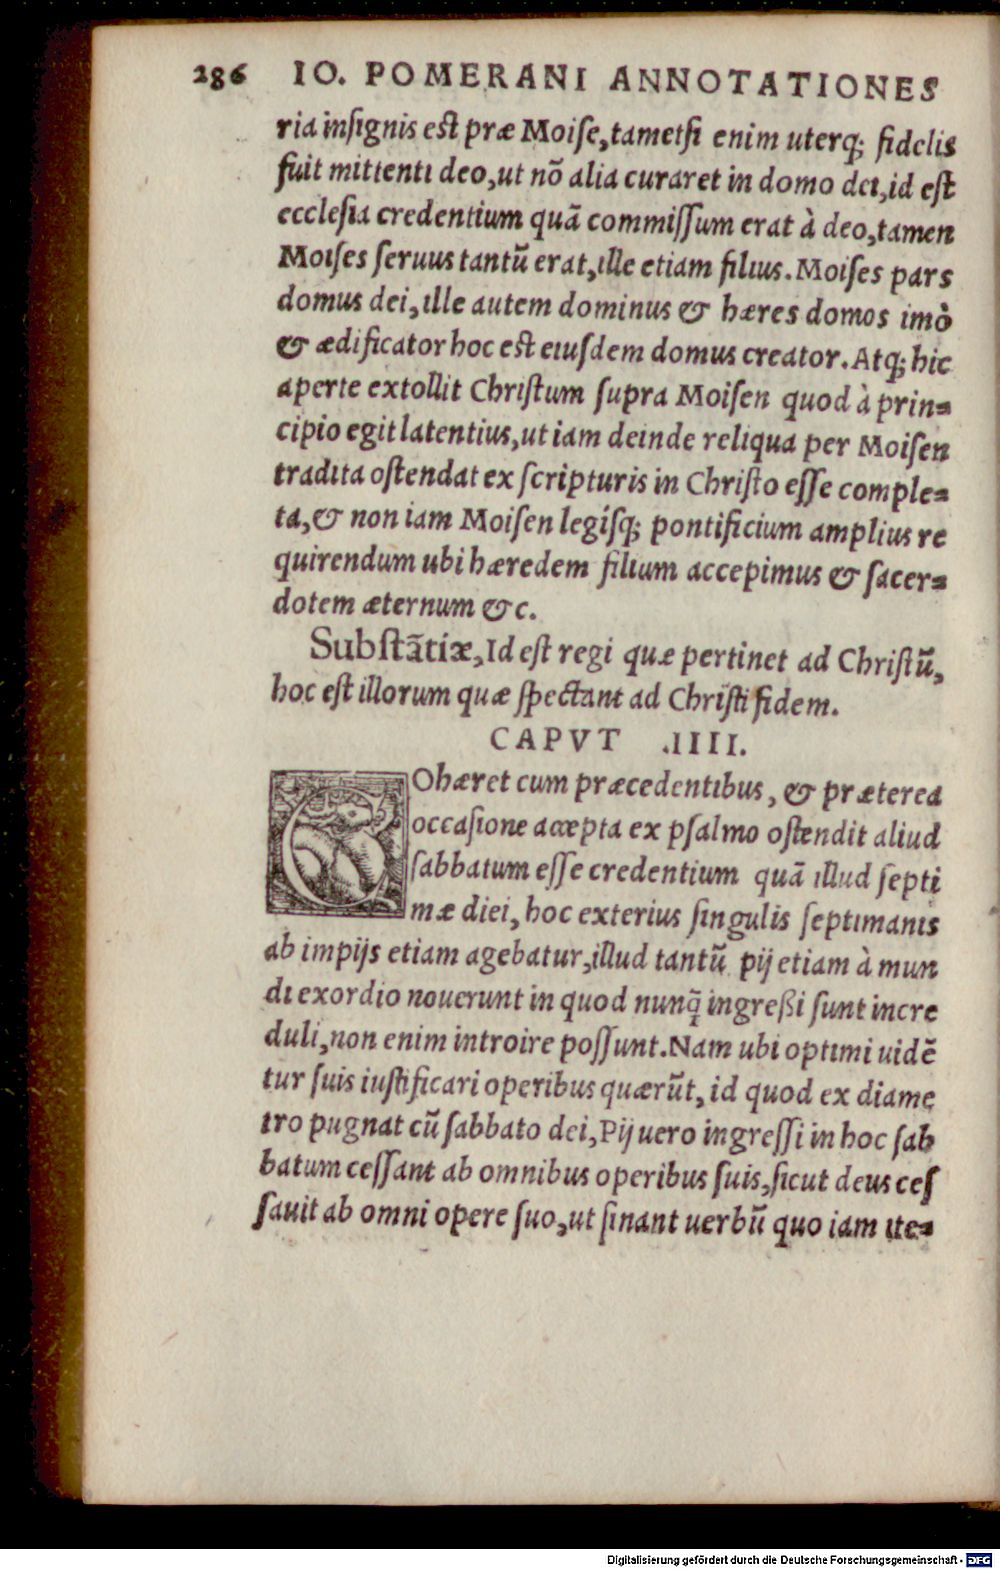 286 IO. POMERANI ANNOTATIONES
ria insignis est præ Moise, tametsi enim uterq; fidelis
fuit mittenti deo, ut nõ alia curaret in domo dei, id est
ecclesia credentium quã commissum erat à deo, tamen
Moises seruus tantũ erat, ille etiam filius. Moises pars
domus dei, ille autem dominus & hæres domos imò
& ædificator hoc est eiusdem domus creator. Atq; hic
aperte extollit Christum supra Moisen quod à prin=
cipio egit latentius, ut iam deinde reliqua per Moisen
tradita ostendat ex scripturis in Christo esse comple=
ta, & non iam Moisen legísq; pontificium amplius re
quirendum ubi hæredem filium accepimus & sacer=
dotem æternum &c.
Substãtiæ, Id est regi quæ pertinet ad Christũ,
hoc est illorum quæ spectant ad Christi fidem.
CAPVT .IIII.
COhæret cum præcedentibus, & præterea
occasione accepta ex psalmo ostendit aliud
sabbatum esse credentium quã illud septi
mæ diei, hoc exterius singulis septimanis
ab impijs etiam agebatur, illud tantũ pij etiam à mun
di exordio nouerunt in quod nunq̃ ingreßi sunt incre
duli, non enim introire possunt. Nam ubi optimi uidẽ
tur suis iustificari operibus quærũt, id quod ex diame
tro pugnat cũ sabbato dei, Pij uero ingressi in hoc sab
batum cessant ab omnibus operibus suis, sicut deus ces
sauit ab omni opere suo, ut sinant uerbũ quo iam ite=
Digitalisierung gefördert durch die Deutsche Forschungsgemeinschaft - DFG